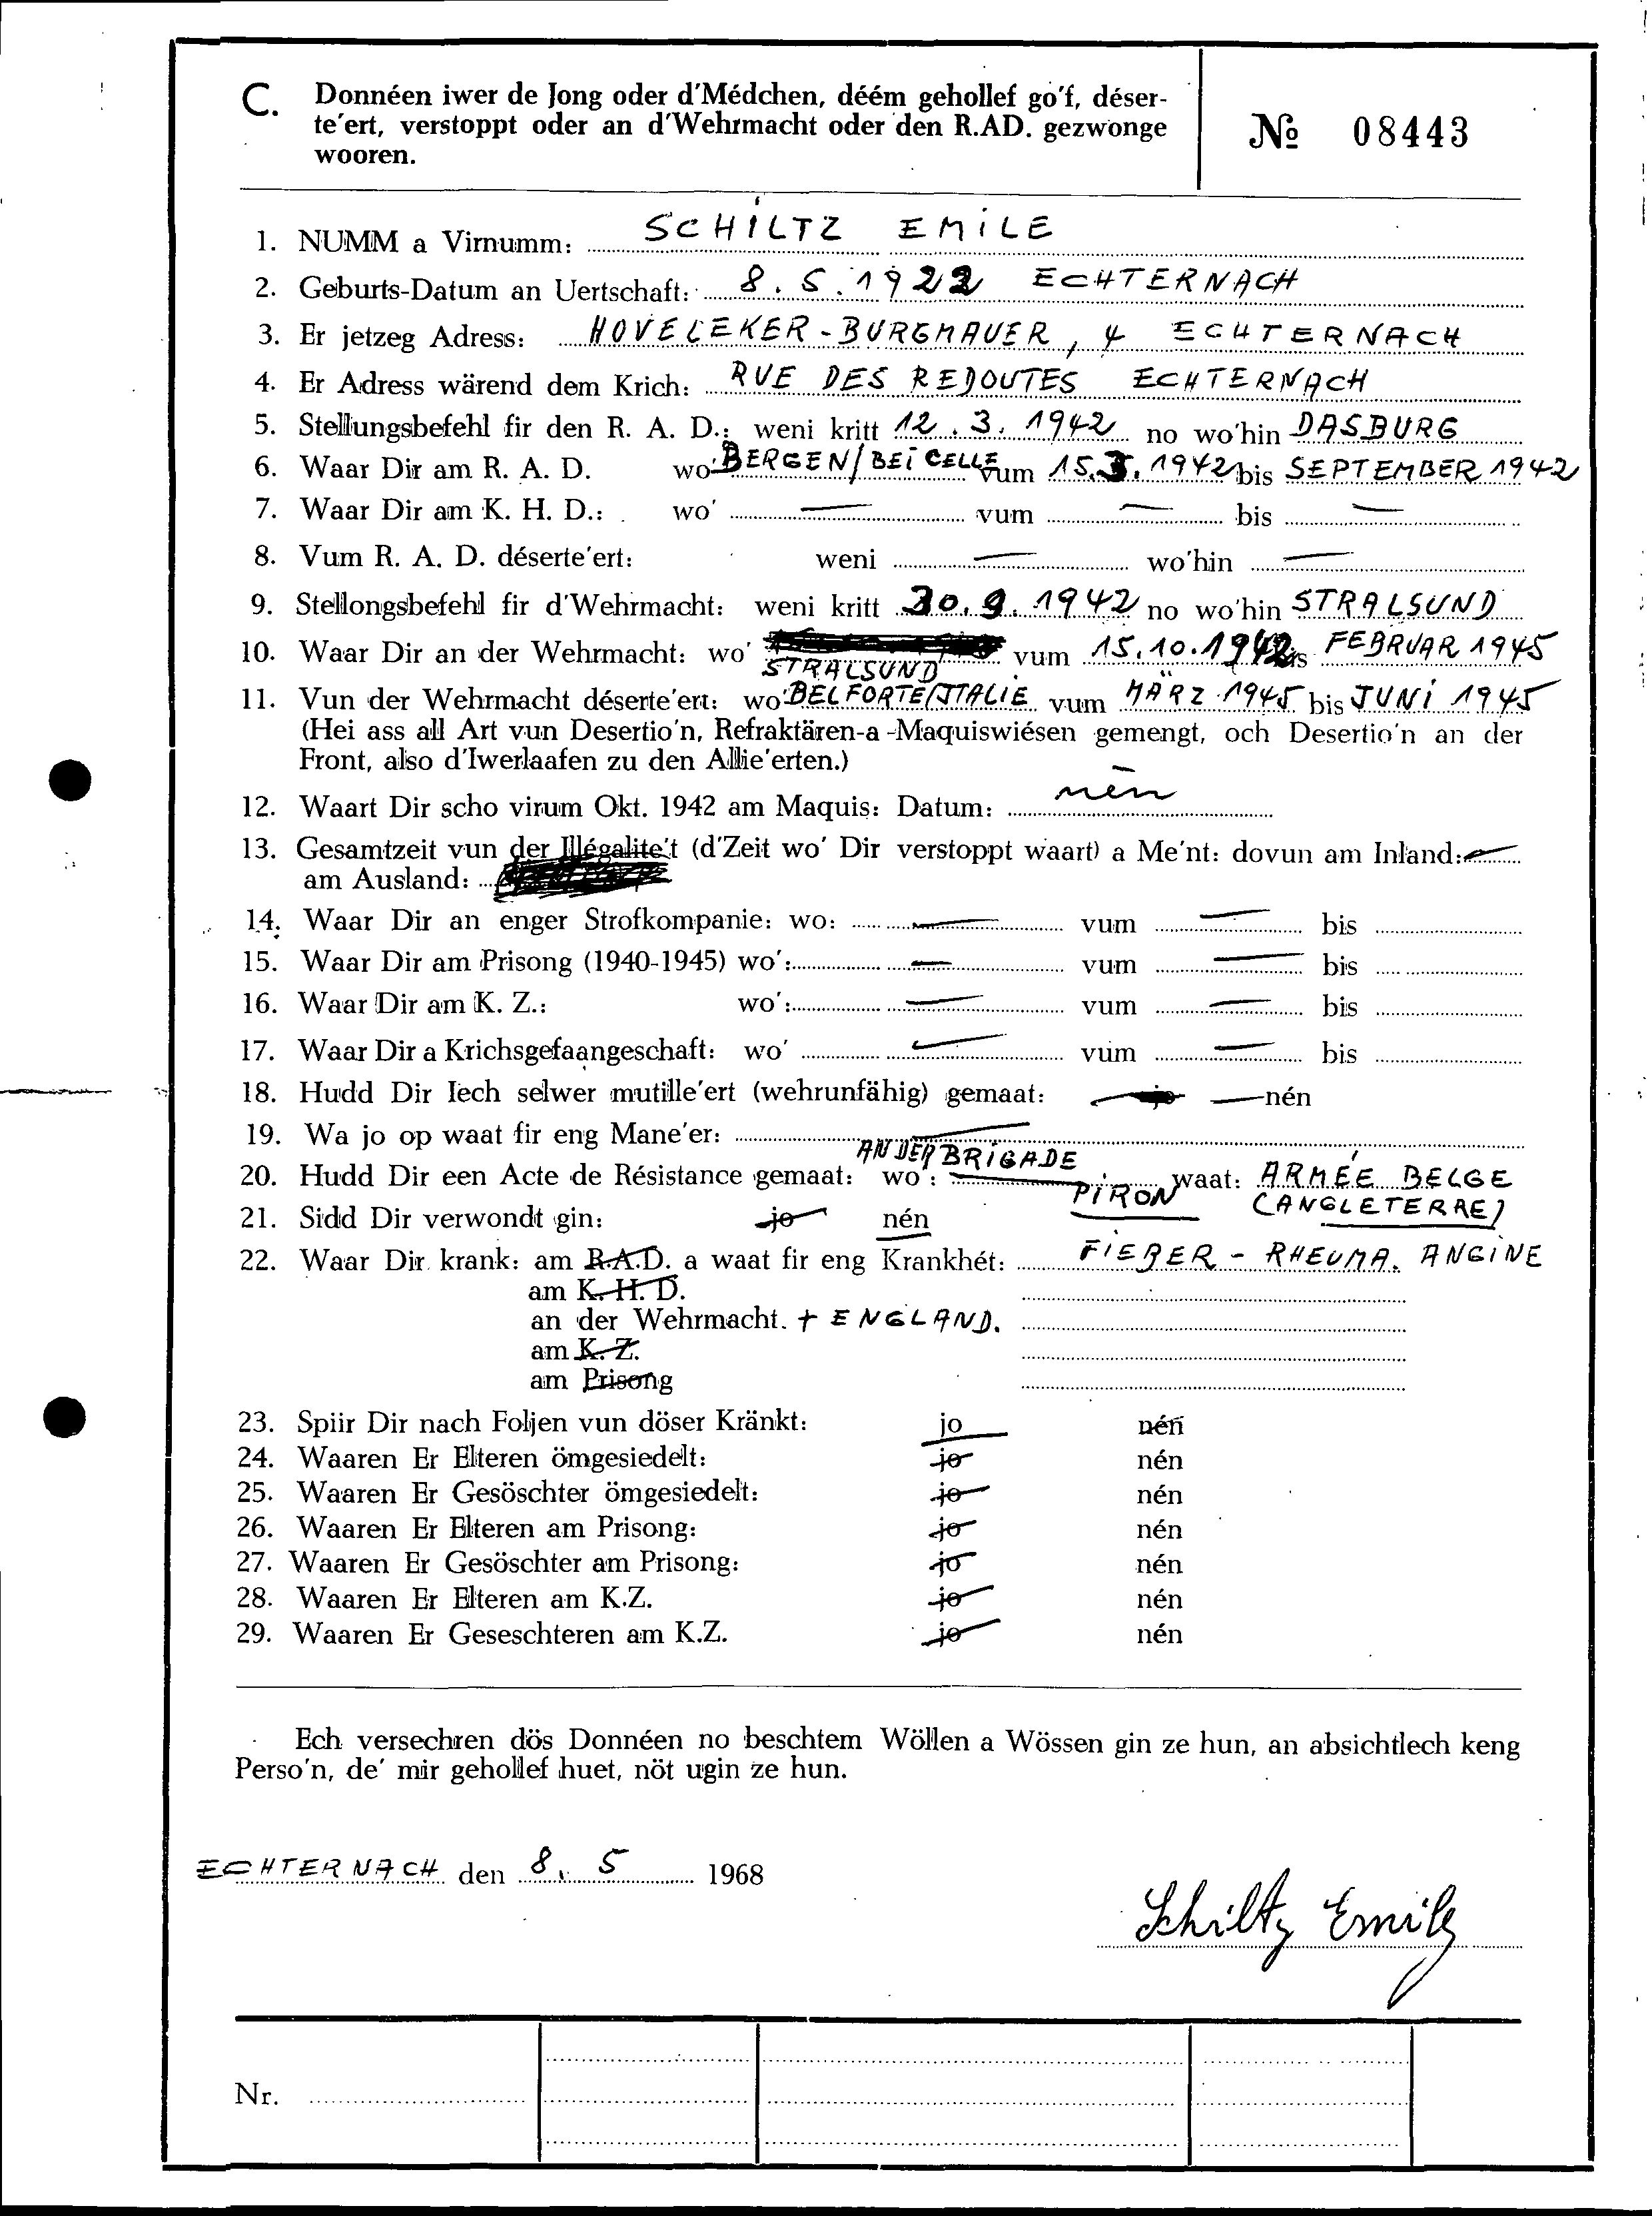 C. Donnéen iwer de Jong oder d'Médchen, déém gehollef go'f, déser-
te'ert, verstoppt oder an d'Wehrmacht oder den R.AD. gezwonge
wooren.
№ 08443
1. NUMM a Virnumm: SCHILTZ EMILE
2. Geburts-Datum an Uertschaft: 8.5.1922 ECHTERNACH
3. Er jetzeg Adress: HOVELEKER-BURGMAUER, 4 ECHTERNACH
4. Er Adress wärend dem Krich: RUE DES REDOUTES ECHTERNACH
5. Stellungsbefehl fir den R. A. D.: weni kritt 12.3.1942 no wo'hin DASBURG
6. Waar Dir am R. A. D. wo' BERGEN/BEI CELLE vum 15.3.1942 bis SEPTEMBER 1942
7. Waar Dir am K. H. D.: wo' — vum — bis —
8. Vum R. A. D. déserte'ert: weni — wo'hin —
9. Stellongsbefehl fir d'Wehrmacht: weni kritt 30.9.1942 no wo'hin STRALSUND
10. Waar Dir an der Wehrmacht: wo' STRALSUND vum 15.10.1942 bis FEBRUAR 1945
11. Vun der Wehrmacht déserte'ert: wo' BELFORTE/ITALIE vum MÄRZ 1945 bis JUNI 1945
(Hei ass all Art vun Desertio'n, Refraktären-a-Maquiswiésen gemengt, och Desertio'n an der
Front, also d'Iwerlaafen zu den Allie'erten.)
12. Waart Dir scho virum Okt. 1942 am Maquis: Datum: nèn
13. Gesamtzeit vun der Illégalite't (d'Zeit wo' Dir verstoppt waart) a Me'nt: dovun am Inland: —
am Ausland:
14. Waar Dir an enger Strofkompanie: wo: — vum — bis
15. Waar Dir am Prisong (1940-1945) wo': — vum — bis
16. Waar Dir am K. Z.: wo': — vum — bis
17. Waar Dir a Krichsgefaangeschaft: wo' — vum — bis
18. Hudd Dir Iech selwer mutille'ert (wehrunfähig) gemaat: jo — nén
19. Wa jo op waat fir eng Mane'er: —
20. Hudd Dir een Acte de Résistance gemaat: wo': AN DER BRIGADE PIRON waat: ARMÉE BELGE (ANGLETERRE)
21. Sidd Dir verwondt gin: jo nén
22. Waar Dir krank: am R.A.D. a waat fir eng Krankhét: FIEBER - RHEUMA. ANGINE
am K. H. D.
an der Wehrmacht. + ENGLAND.
am K. Z.
am Prisong
23. Spiir Dir nach Foljen vun döser Kränkt: jo nén
24. Waaren Er Elteren ömgesiedelt: jo nén
25. Waaren Er Gesöschter ömgesiedelt: jo nén
26. Waaren Er Elteren am Prisong: jo nén
27. Waaren Er Gesöschter am Prisong: jo nén
28. Waaren Er Elteren am K.Z. jo nén
29. Waaren Er Geseschteren am K.Z. jo nén
Ech versechren dös Donnéen no beschtem Wöllen a Wössen gin ze hun, an absichtlech keng
Perso'n, de' mir gehollef huet, nöt ugin ze hun.
ECHTERNACH den 8. 5 1968
Schiltz Emile
Nr.